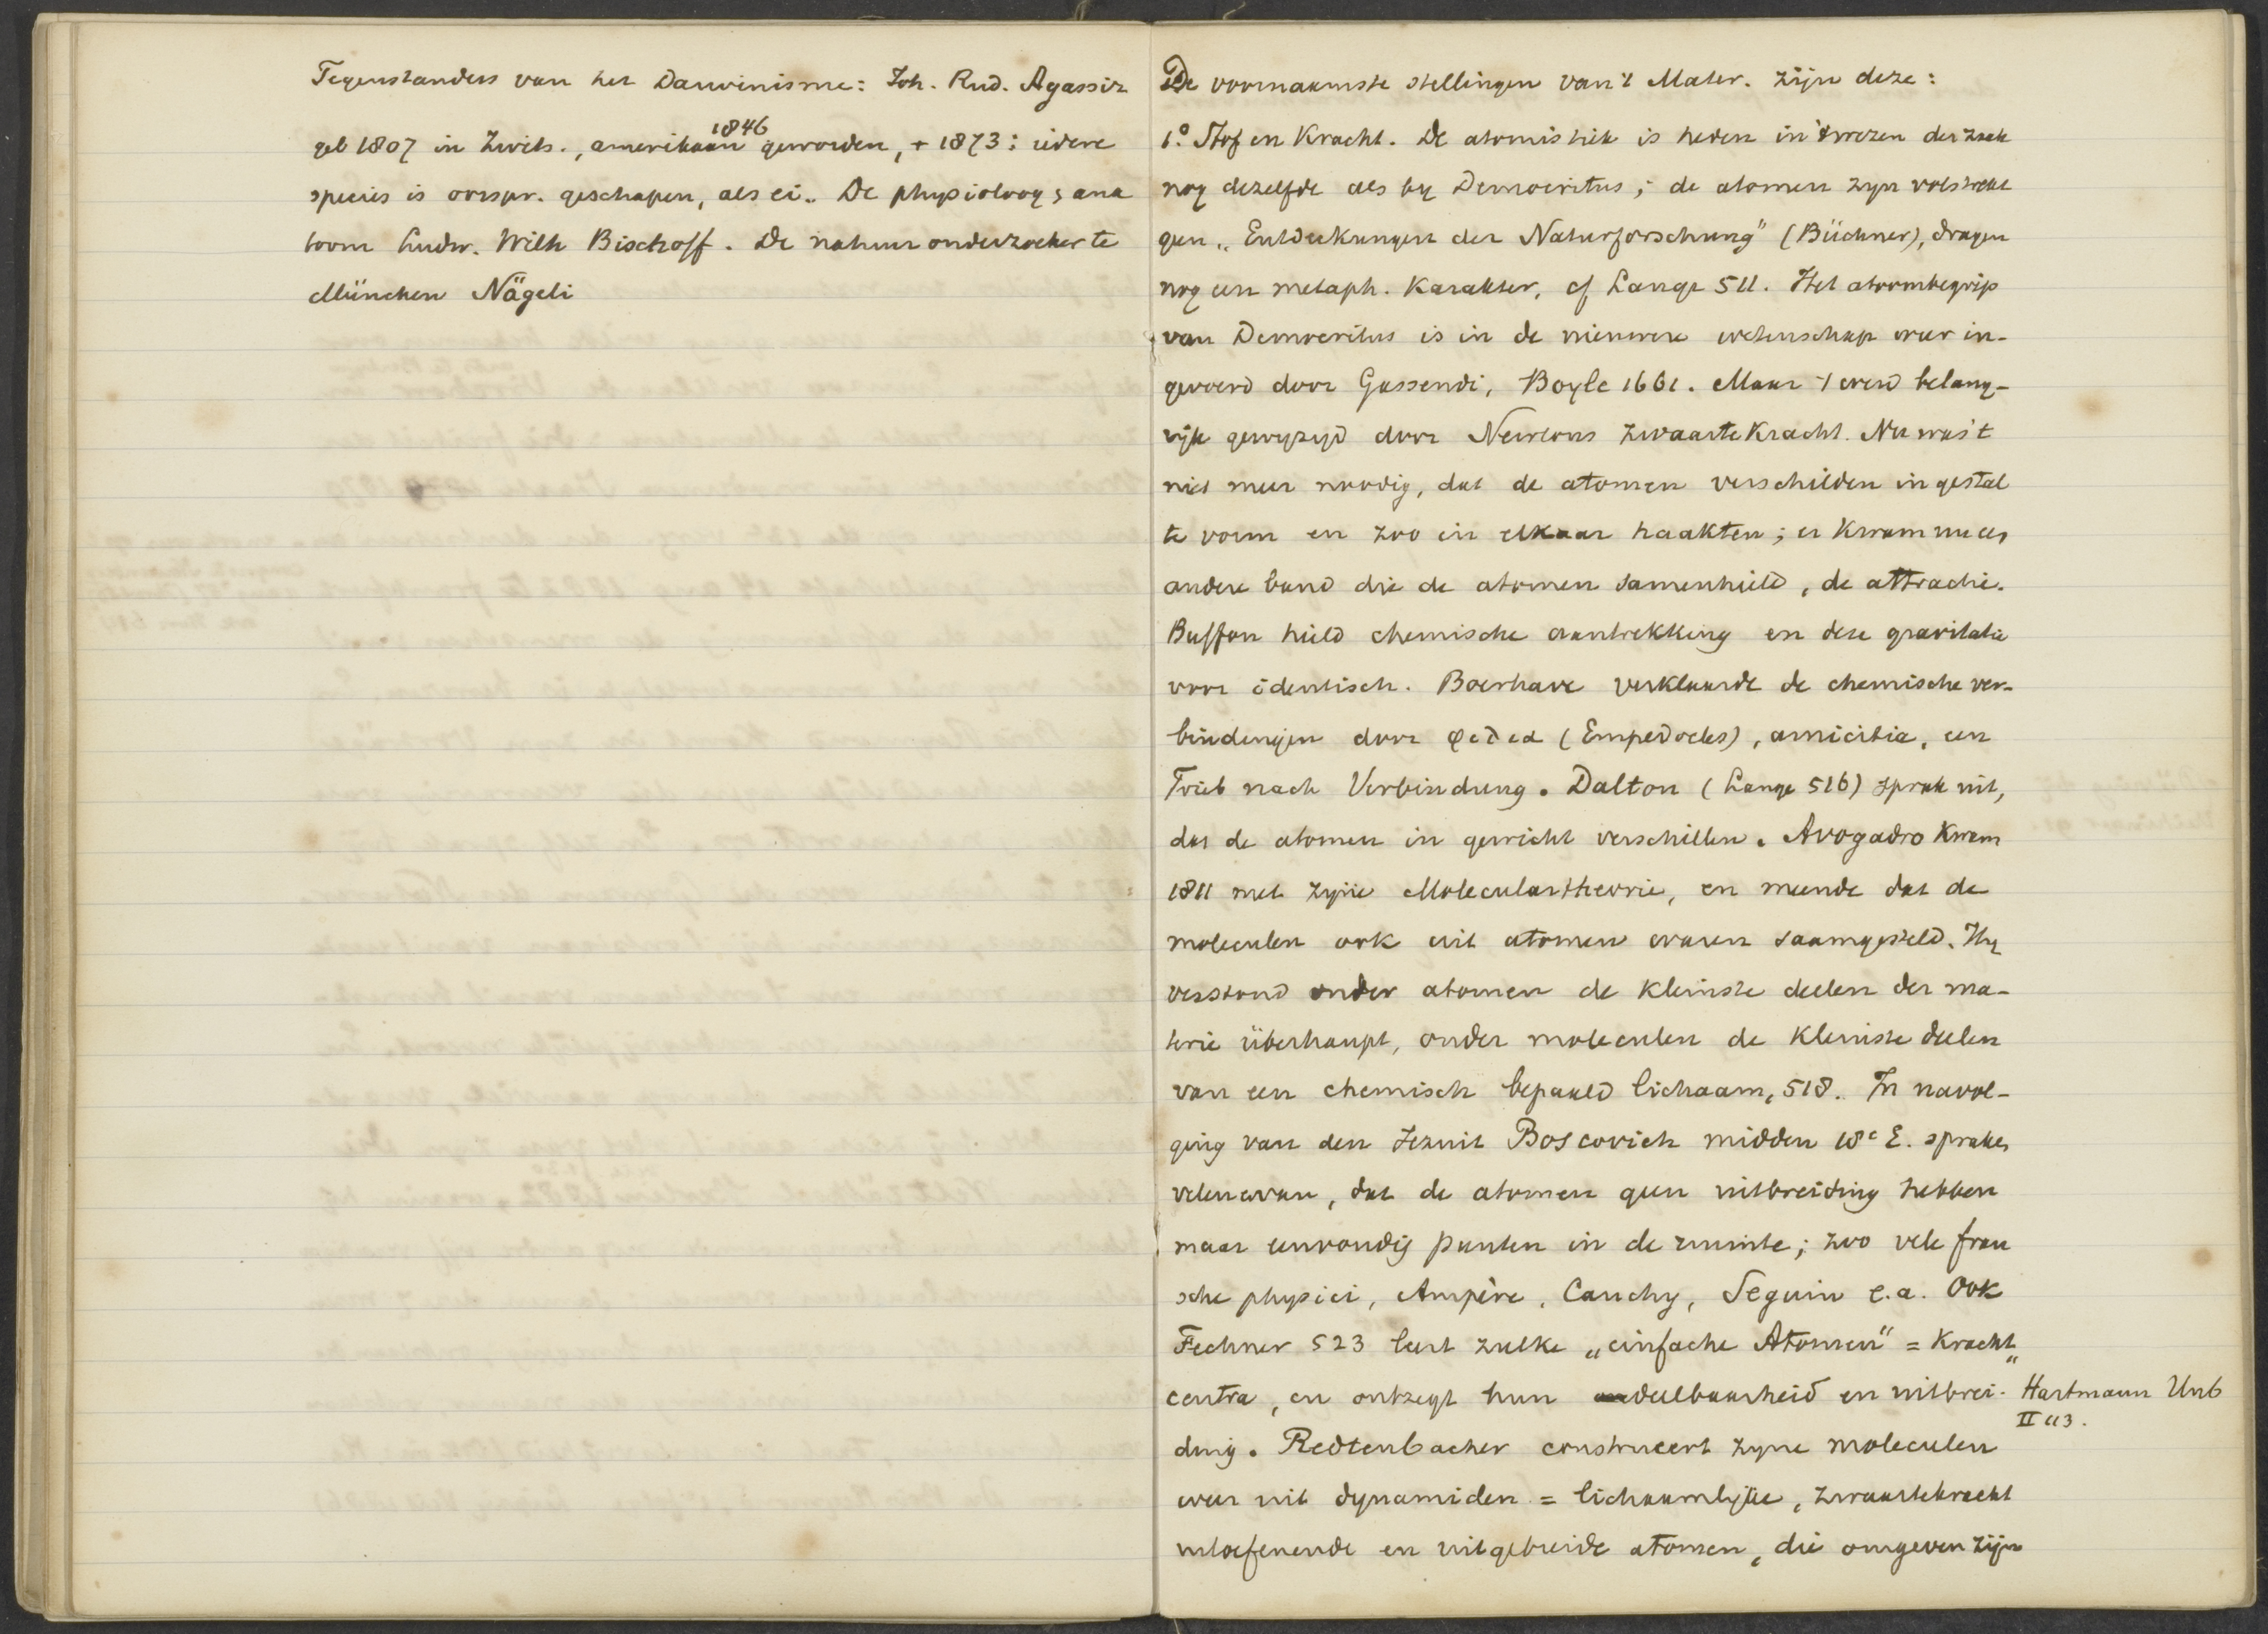 Tegenstanders van het Darwinisme: Joh. Rud. Agassiz
1846
geb 1807 in Zwits., amerikaan geworden, + 1873: iedere
species is oorspr. geschapen, als ei. De physioloog & ana
toom Ludw. Wilh Bischoff. De natuuronderzoeker te
München Nägeli
De voornaamste stellingen van 't Mater. zijn deze:
1.° Stof en Kracht. De atomistiek is heden in 't wezen der zaak
nog dezelfde als by Democritus; de atomen zyn volstrekt
geen „Entdeckungen der Naturforschung" (Büchner), dragen
nog een metaph. Karakter, cf Lange 511. Het atoombegrip
van Democritus is in de nieuwere wetenschap weer in-
gevoerd door Gassendi, Boyle 1661. Maar 't werd belang-
rijk gewyzigd door Newtons zwaarteKracht. Nu was 't
niet meer noodig, dat de atomen verschilden in gestal
te vorm en zoo in elkaar haakten; er kwam nu een
andere band die de atomen samenhield, de attractie.
Buffon hield chemische aantrekking en deze gravitatie
voor identisch. Boerhave verklaarde de chemische ver-
bindingen door φιλια (Empedocles), amicitia, een
Trieb nach Verbindung. Dalton (Lange 516) sprak uit,
dat de atomen in gewicht verschillen. Avogadro kwam
1811 met zyne Moleculartheorie, en meende dat de
moleculen ook uit atomen waren saamgesteld. Hy
verstond onder atomen de kleinste deelen der ma-
terie überhaupt, onder moleculen de kleinste deelen
van een chemisch bepaald lichaam, 518. In navol-
ging van den Jezuit Boscovich midden 18e E. spraken
velen ervan, dat de atomen geen uitbreiding hebben
maar eenvoudig punten in de ruimte; zoo vele fran
sche physici, Ampère, Cauchy, Seguin e.a. Ook
Fechner 523 leert zulke „einfache Atomen" = Kracht
centra, en ontzegt hun deelbaarheid en uitbrei-
" Hartmann Unb
II 113.
ding. Redtenbacher construeert zyne moleculen
weer uit dynamiden = lichaamlijke, zwaartekracht
uitoefenende en uitgebreide atomen, die omgeven zijn